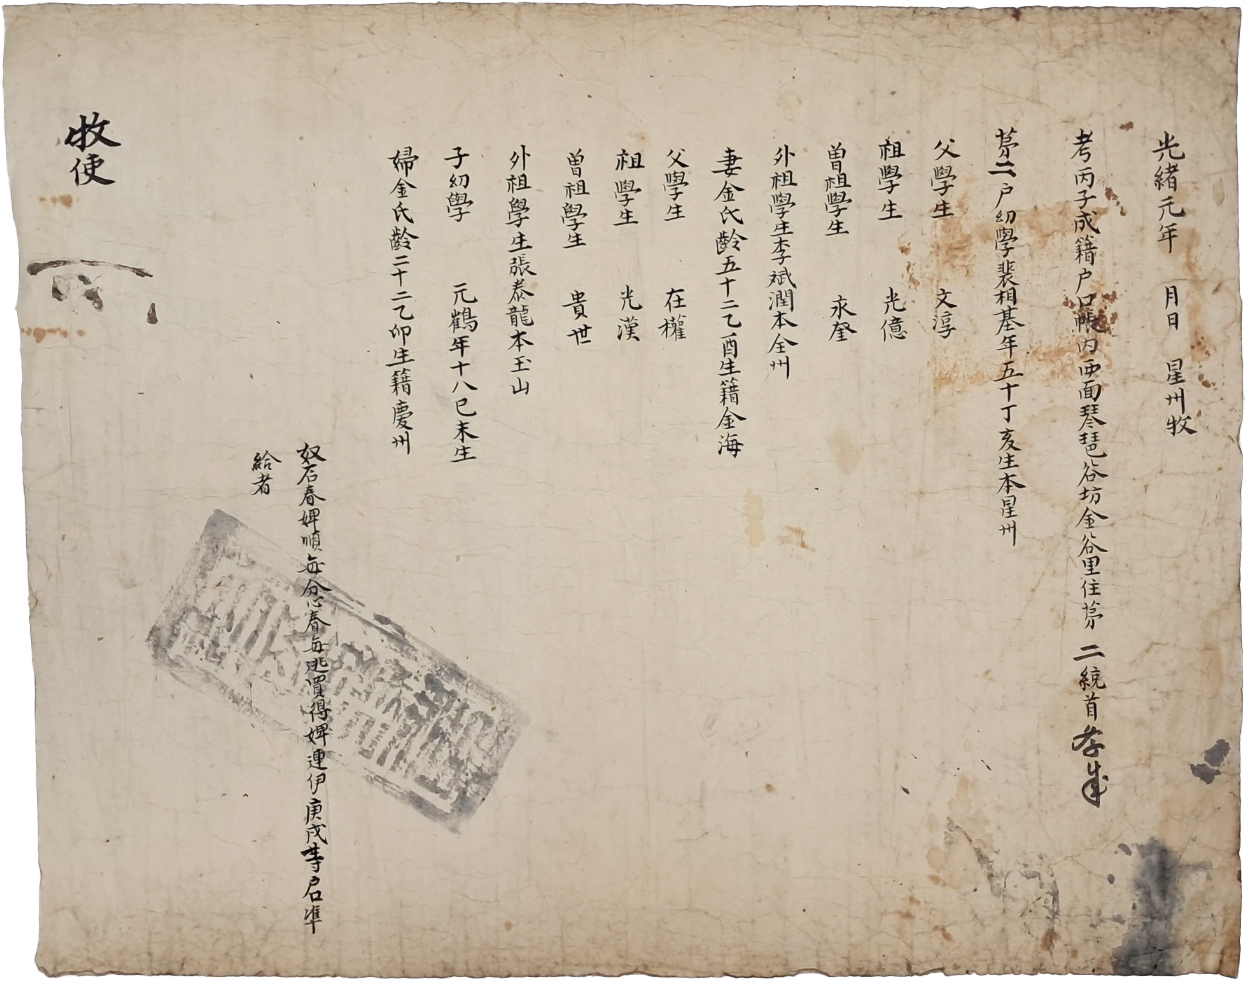 光緒元年 月日 星州牧
考丙子成籍户口帳內西面琴琶谷坊金谷里住苐二統首
苐二户幼學裴相基年五十丁亥生本星州
父學生 文淳
祖學生 光億
曾祖學生 永奎
外祖學生李斌潤本全州
妻金氏齡五十二乙酉生籍金海
父學生 在權
祖學生 光漢
曾祖學生 貴世
外祖學生張泰龍本玉山
子幼學 元鶴年十八己未生
婦金氏齡二十二乙卯生籍慶州
奴石春婢順每念春每逃買得婢連伊庚戌等户口準
給者
牧使